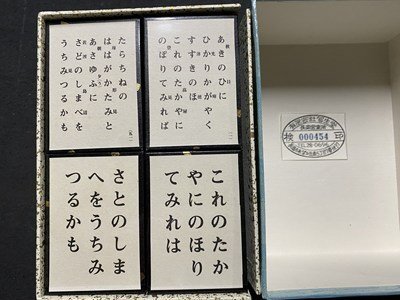 たらちねの
ははがかたみと
あさゆふに
さどのしまべを
うちみつるかも
あきのひに
ひかりかがやく
すすきのほ
これのたかやに
のぼりてみれば
さとのしま
へをうちみ
つるかも
これのたか
やにのほり
てみれは
検
000454